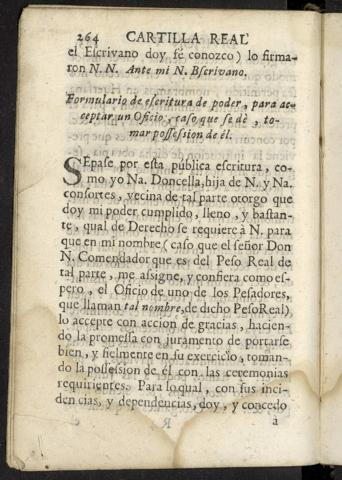 264 CARTILLA REAL
el Escrivano doy fé conozco) lo firma-
ron N. N. Ante mi N. Bscrivano.
Formulario de escritura de poder, para ac-
ceptar un Oficio, caso que se dè, to-
mar possession de él.
SEpase por esta publica escritura, co-
mo yo Na. Doncella, hija de N. y Na.
consortes, vecina de tal parte otorgo que
doy mi poder cumplido, lleno, y bastan-
te, qual de Derecho se requiere à N. para
que en mi nombre (caso que el señor Don
N. Comendador que es del Peso Real de
tal parte, me assigne, y confiera como es-
pero, el Oficio de uno de los Pesadores,
que llaman tal nombre, de dicho Peso Real)
lo accepte con accion de gracias, hacien-
do la promessa con juramento de portarse
bien, y fielmente en su exercicio, toman-
do la possession de él con las ceremonias
requirientes. Para lo qual, con sus inci-
dencias, y dependencias, doy, y concedo
a